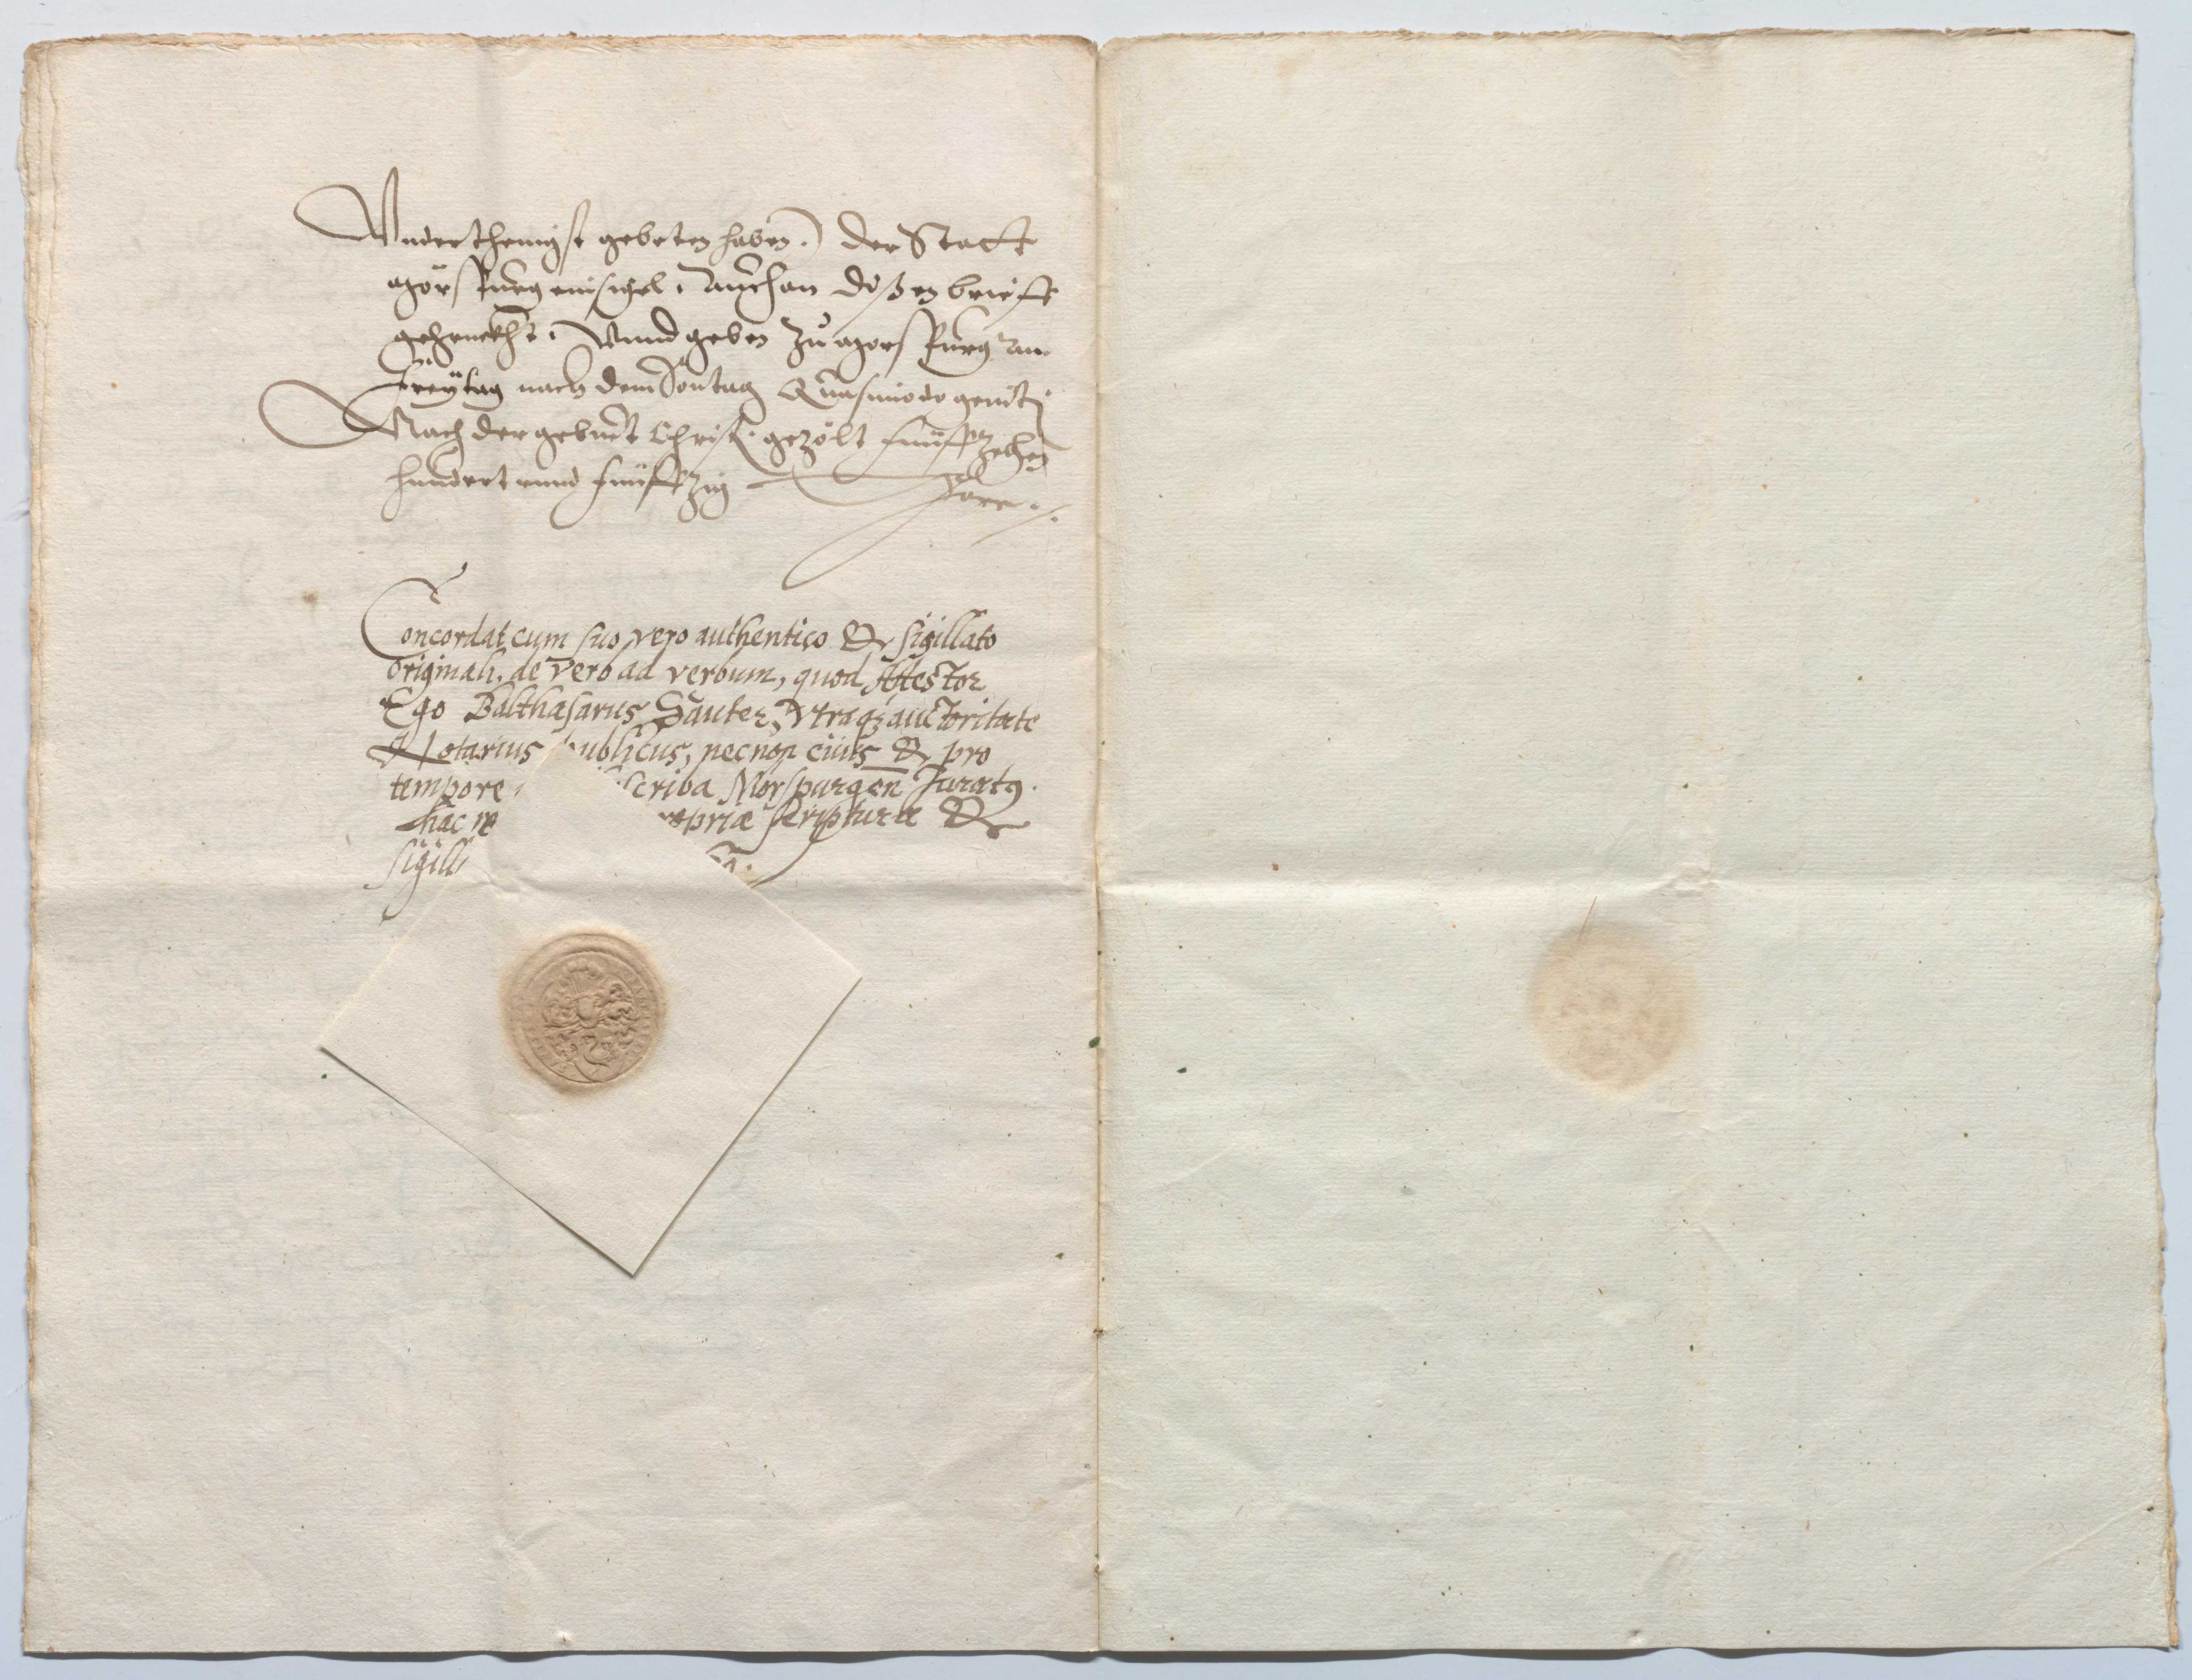 Vnderthenigst gebeten haben. der Statt
Mörspurg einsigel, auch an dißen brieff
gehenckht, Vnnd geben zu Morspurg am
Freÿtag nach dem Sontag Quasimodo genitj
Nach der geburt Christ. gezölt funffzehen
hundert vnnd funffzig Jare.
Concordat cum suo vero authentico & sigillato
originali, de vero ad verbum, quod Attestor
Ego Balthasarus Sauter, Vtraqз auctoritate
Notarius publicus, necnon ciuis & pro
tempore criba Mörspurgen̄ Juratꝯ.
hac propriæ scripturæ &
sigilli